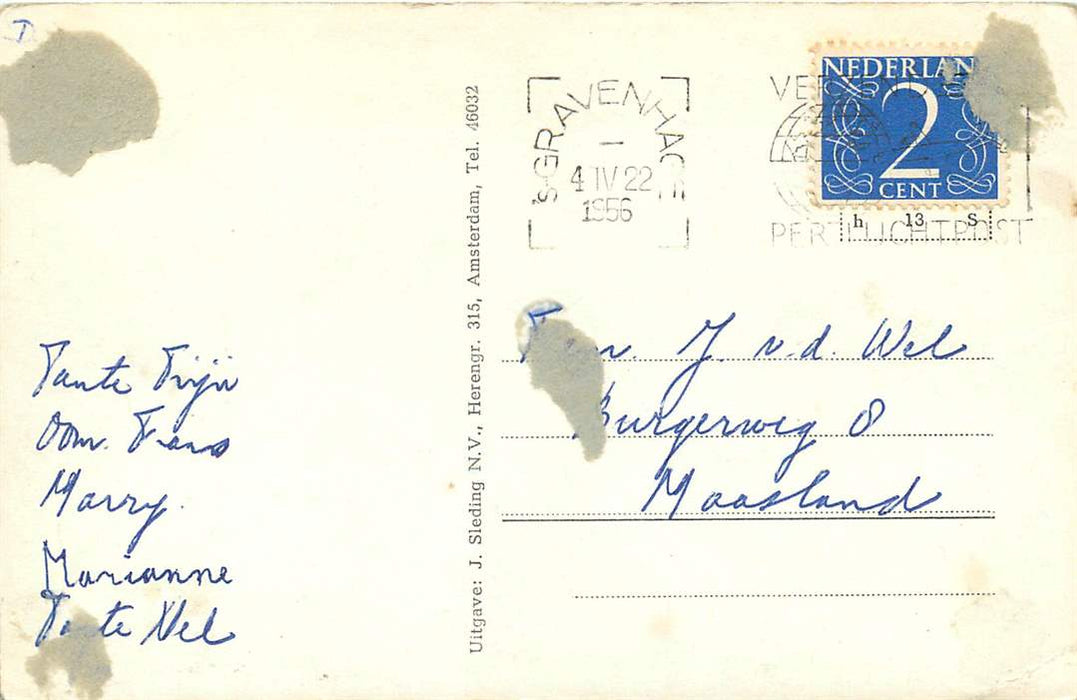 Tante Trijn
Oom. Frans
Marry.
Marianne
Tante Nel
Uitgave: J. Sleding N.V., Herengr. 315, Amsterdam, Tel. 46032
'S-GRAVENHAGE
4 IV 22
1956
NEDERLAN
2
CENT
PER LUCHTPOST
h 13 S
J. v.d. Wel
Burgerweg 8
Maasland